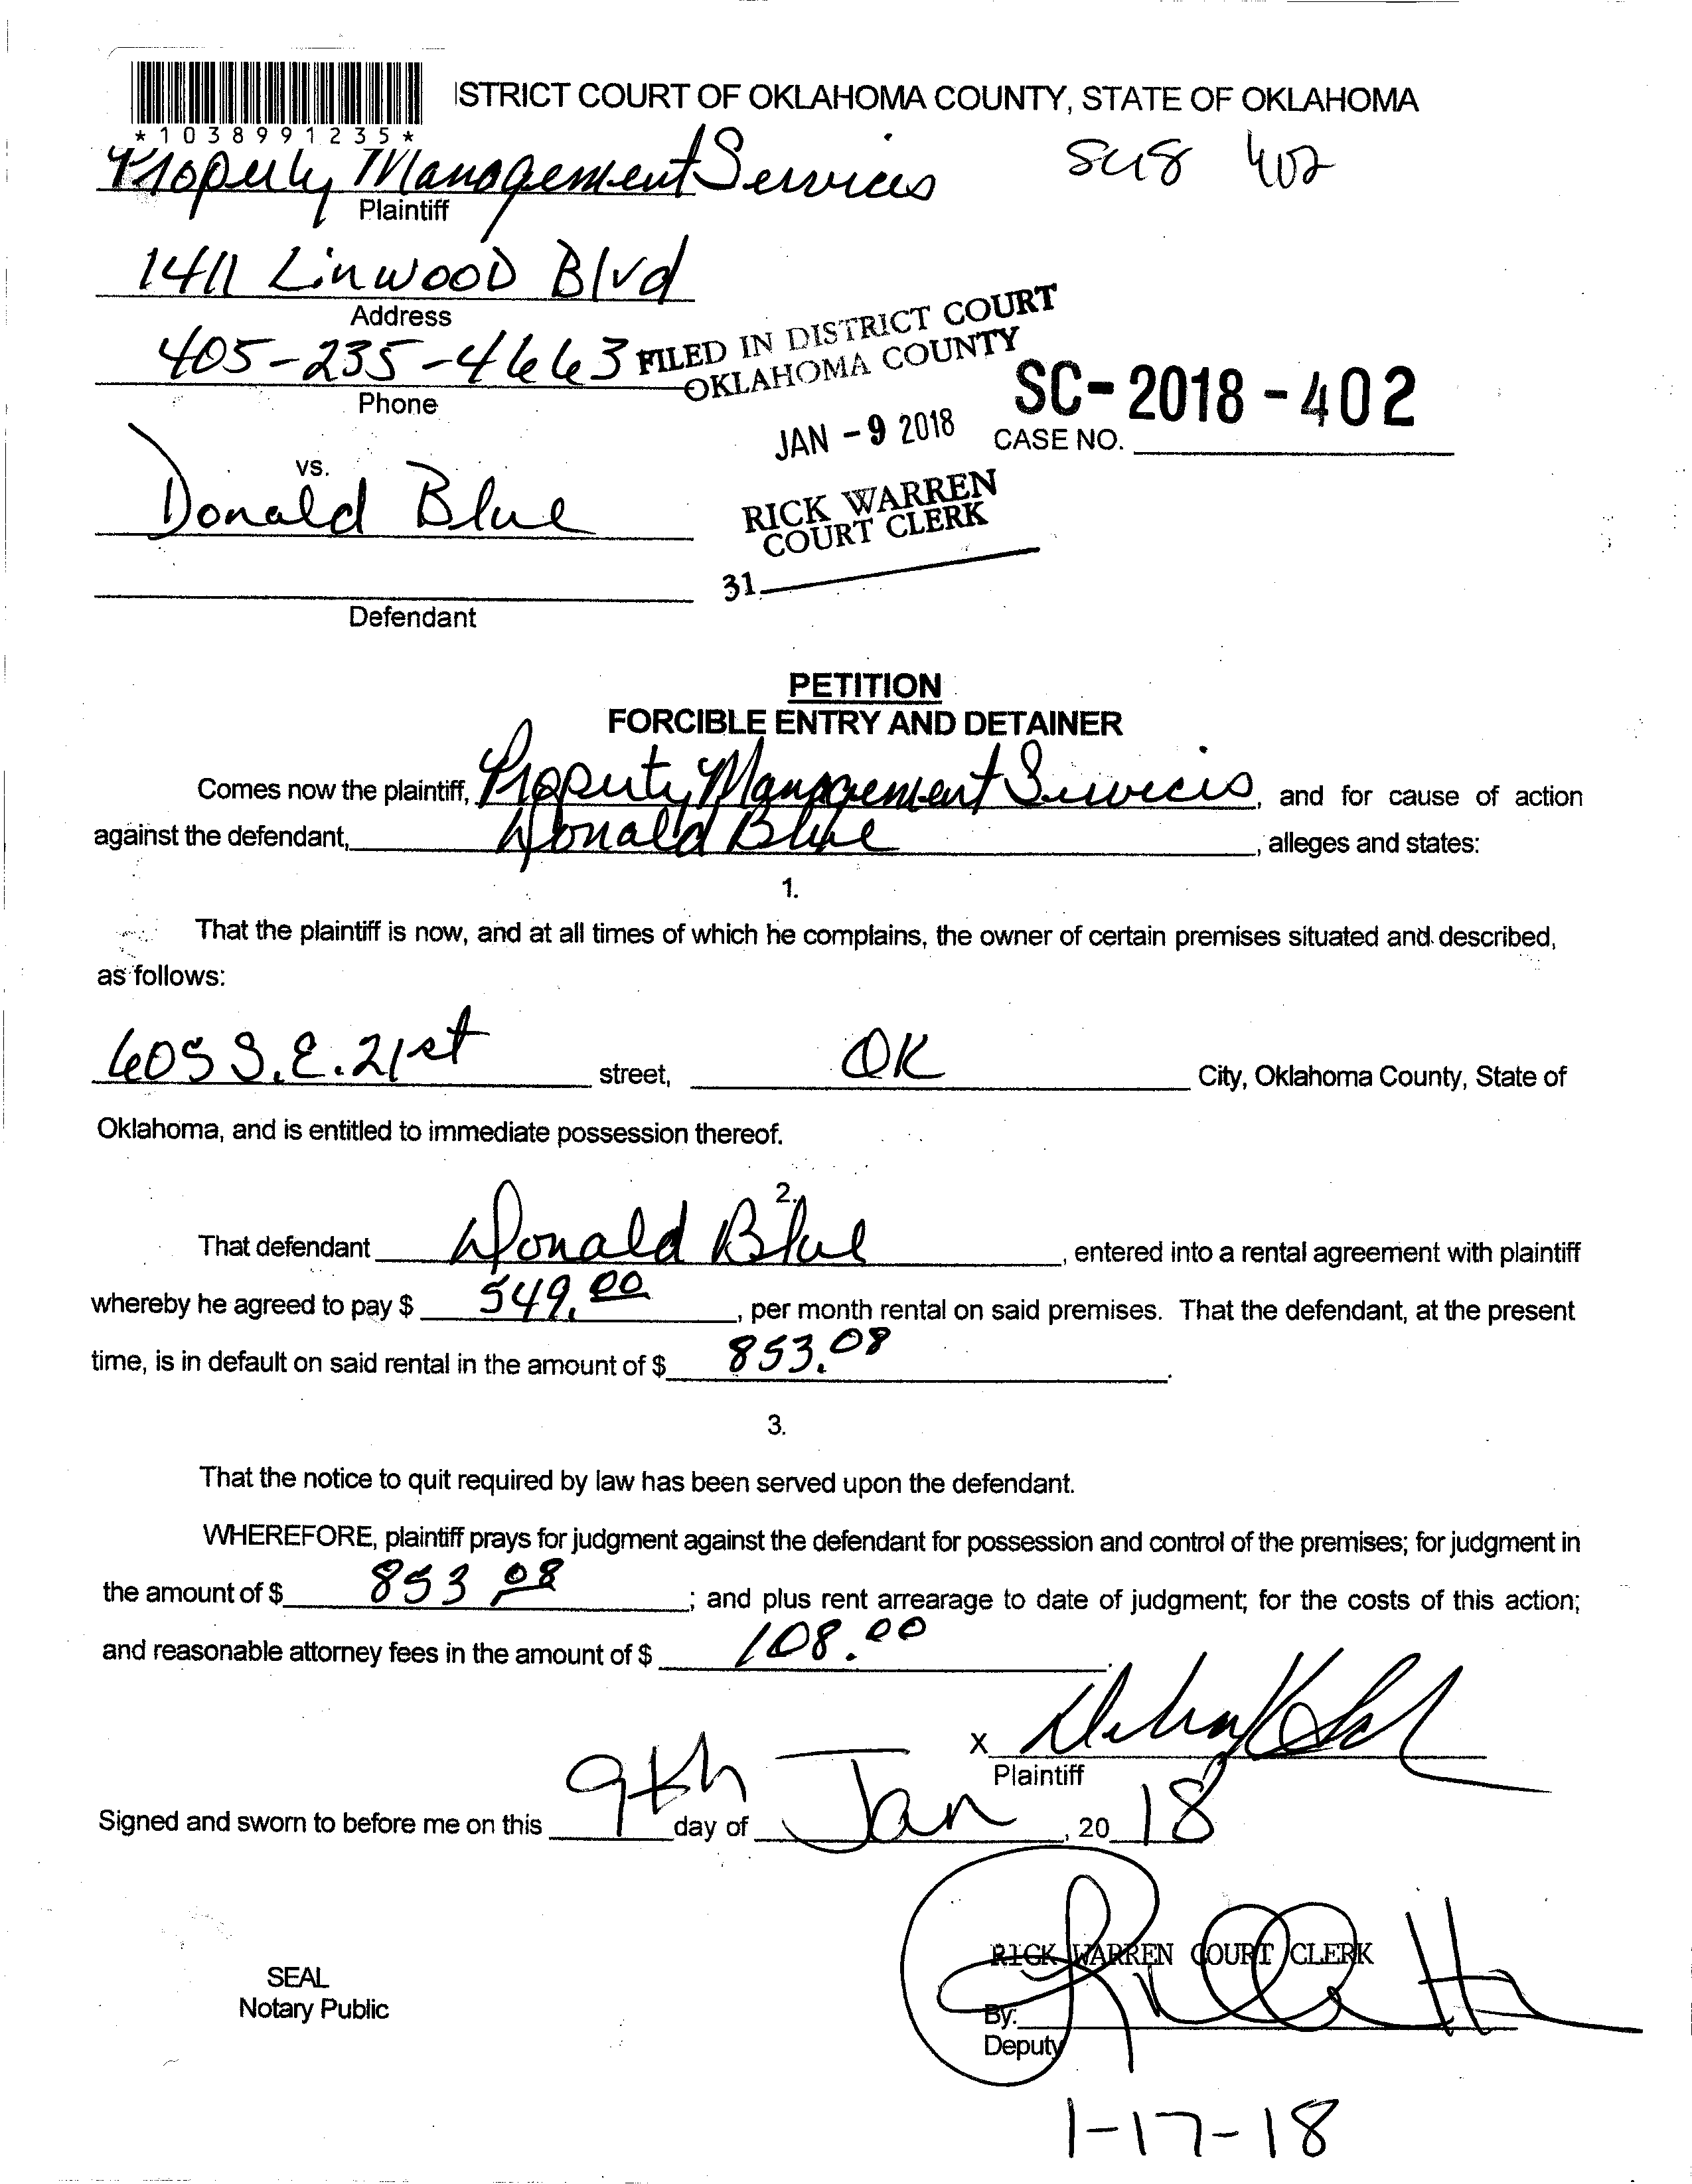 ISTRICT COURT OF OKLAHOMA COUNTY, STATE OF OKLAHOMA
*1038991235*
Property Management Services
Plaintiff
402
1411 Linwood Blvd
Address
405-235-4663
Phone
FILED IN DISTRICT COURT
OKLAHOMA COUNTY
JAN - 9 2018
SC-2018-402
CASE NO.
vs.
Donald Blue
RICK WARREN
COURT CLERK
31
Defendant
PETITION
FORCIBLE ENTRY AND DETAINER
Comes now the plaintiff, Property Management Services, and for cause of action
against the defendant, Donald Blue, alleges and states:
1.
That the plaintiff is now, and at all times of which he complains, the owner of certain premises situated and described,
as follows:
605 S.E. 21st street, OK City, Oklahoma County, State of
Oklahoma, and is entitled to immediate possession thereof.
2.
That defendant Donald Blue, entered into a rental agreement with plaintiff
whereby he agreed to pay $ 549.00, per month rental on said premises. That the defendant, at the present
time, is in default on said rental in the amount of $ 853.08.
3.
That the notice to quit required by law has been served upon the defendant.
WHEREFORE, plaintiff prays for judgment against the defendant for possession and control of the premises; for judgment in
the amount of $ 853 08; and plus rent arrearage to date of judgment; for the costs of this action;
and reasonable attorney fees in the amount of $ 108.00.
X
Plaintiff
Signed and sworn to before me on this 9th day of Jan, 20 18
RICK WARREN COURT CLERK
SEAL
Notary Public
By:
Deputy
1-17-18